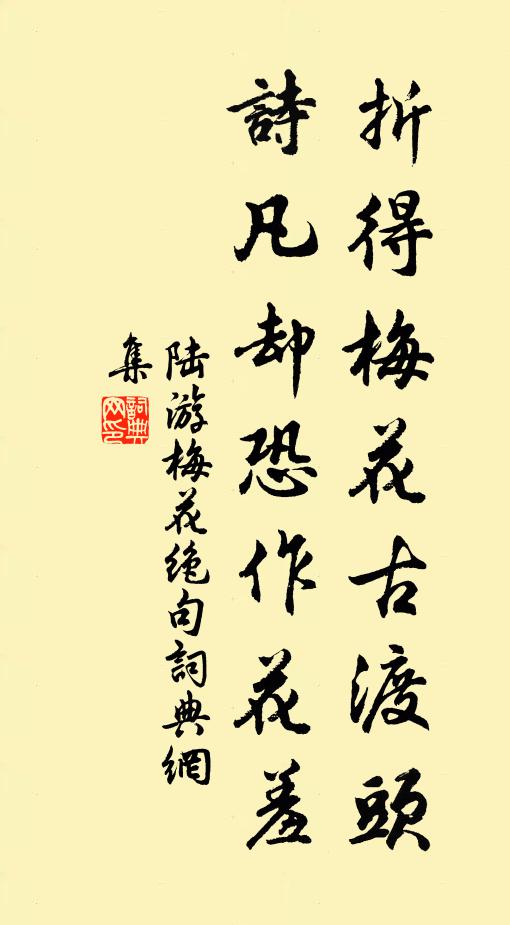 折得梅花古渡頭
詩凡却恐作花羞
陆游梅花绝句詞典網
集
詞典网印